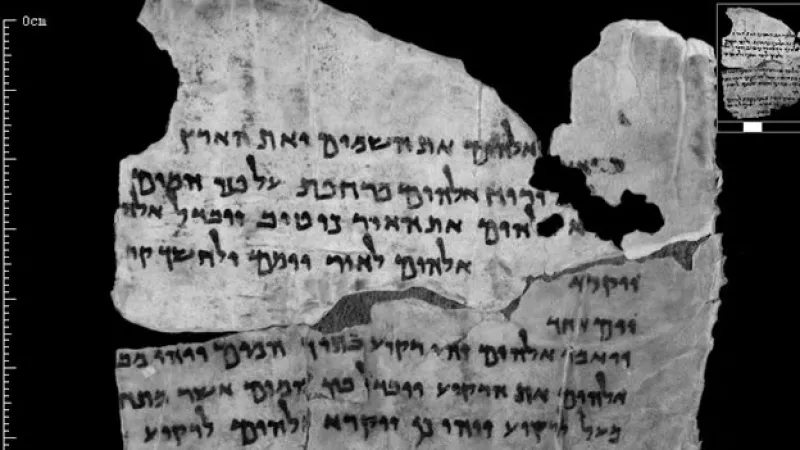 0cm
אלהים את השמים ואת הארץ
ורוח אלהים מרחפת על פני המים
אלהים את האור כי טוב ויבדל אלה
אלהים לאור יומם ולחשך קר
ויקרא
יום אחד
ויאמר אלהים יהי רקיע בתוך המים ויהי
אלהים את הרקיע ויבדל בין המים אשר מתח
מעל לרקיע ויהי כן ויקרא אלהים לרקיע